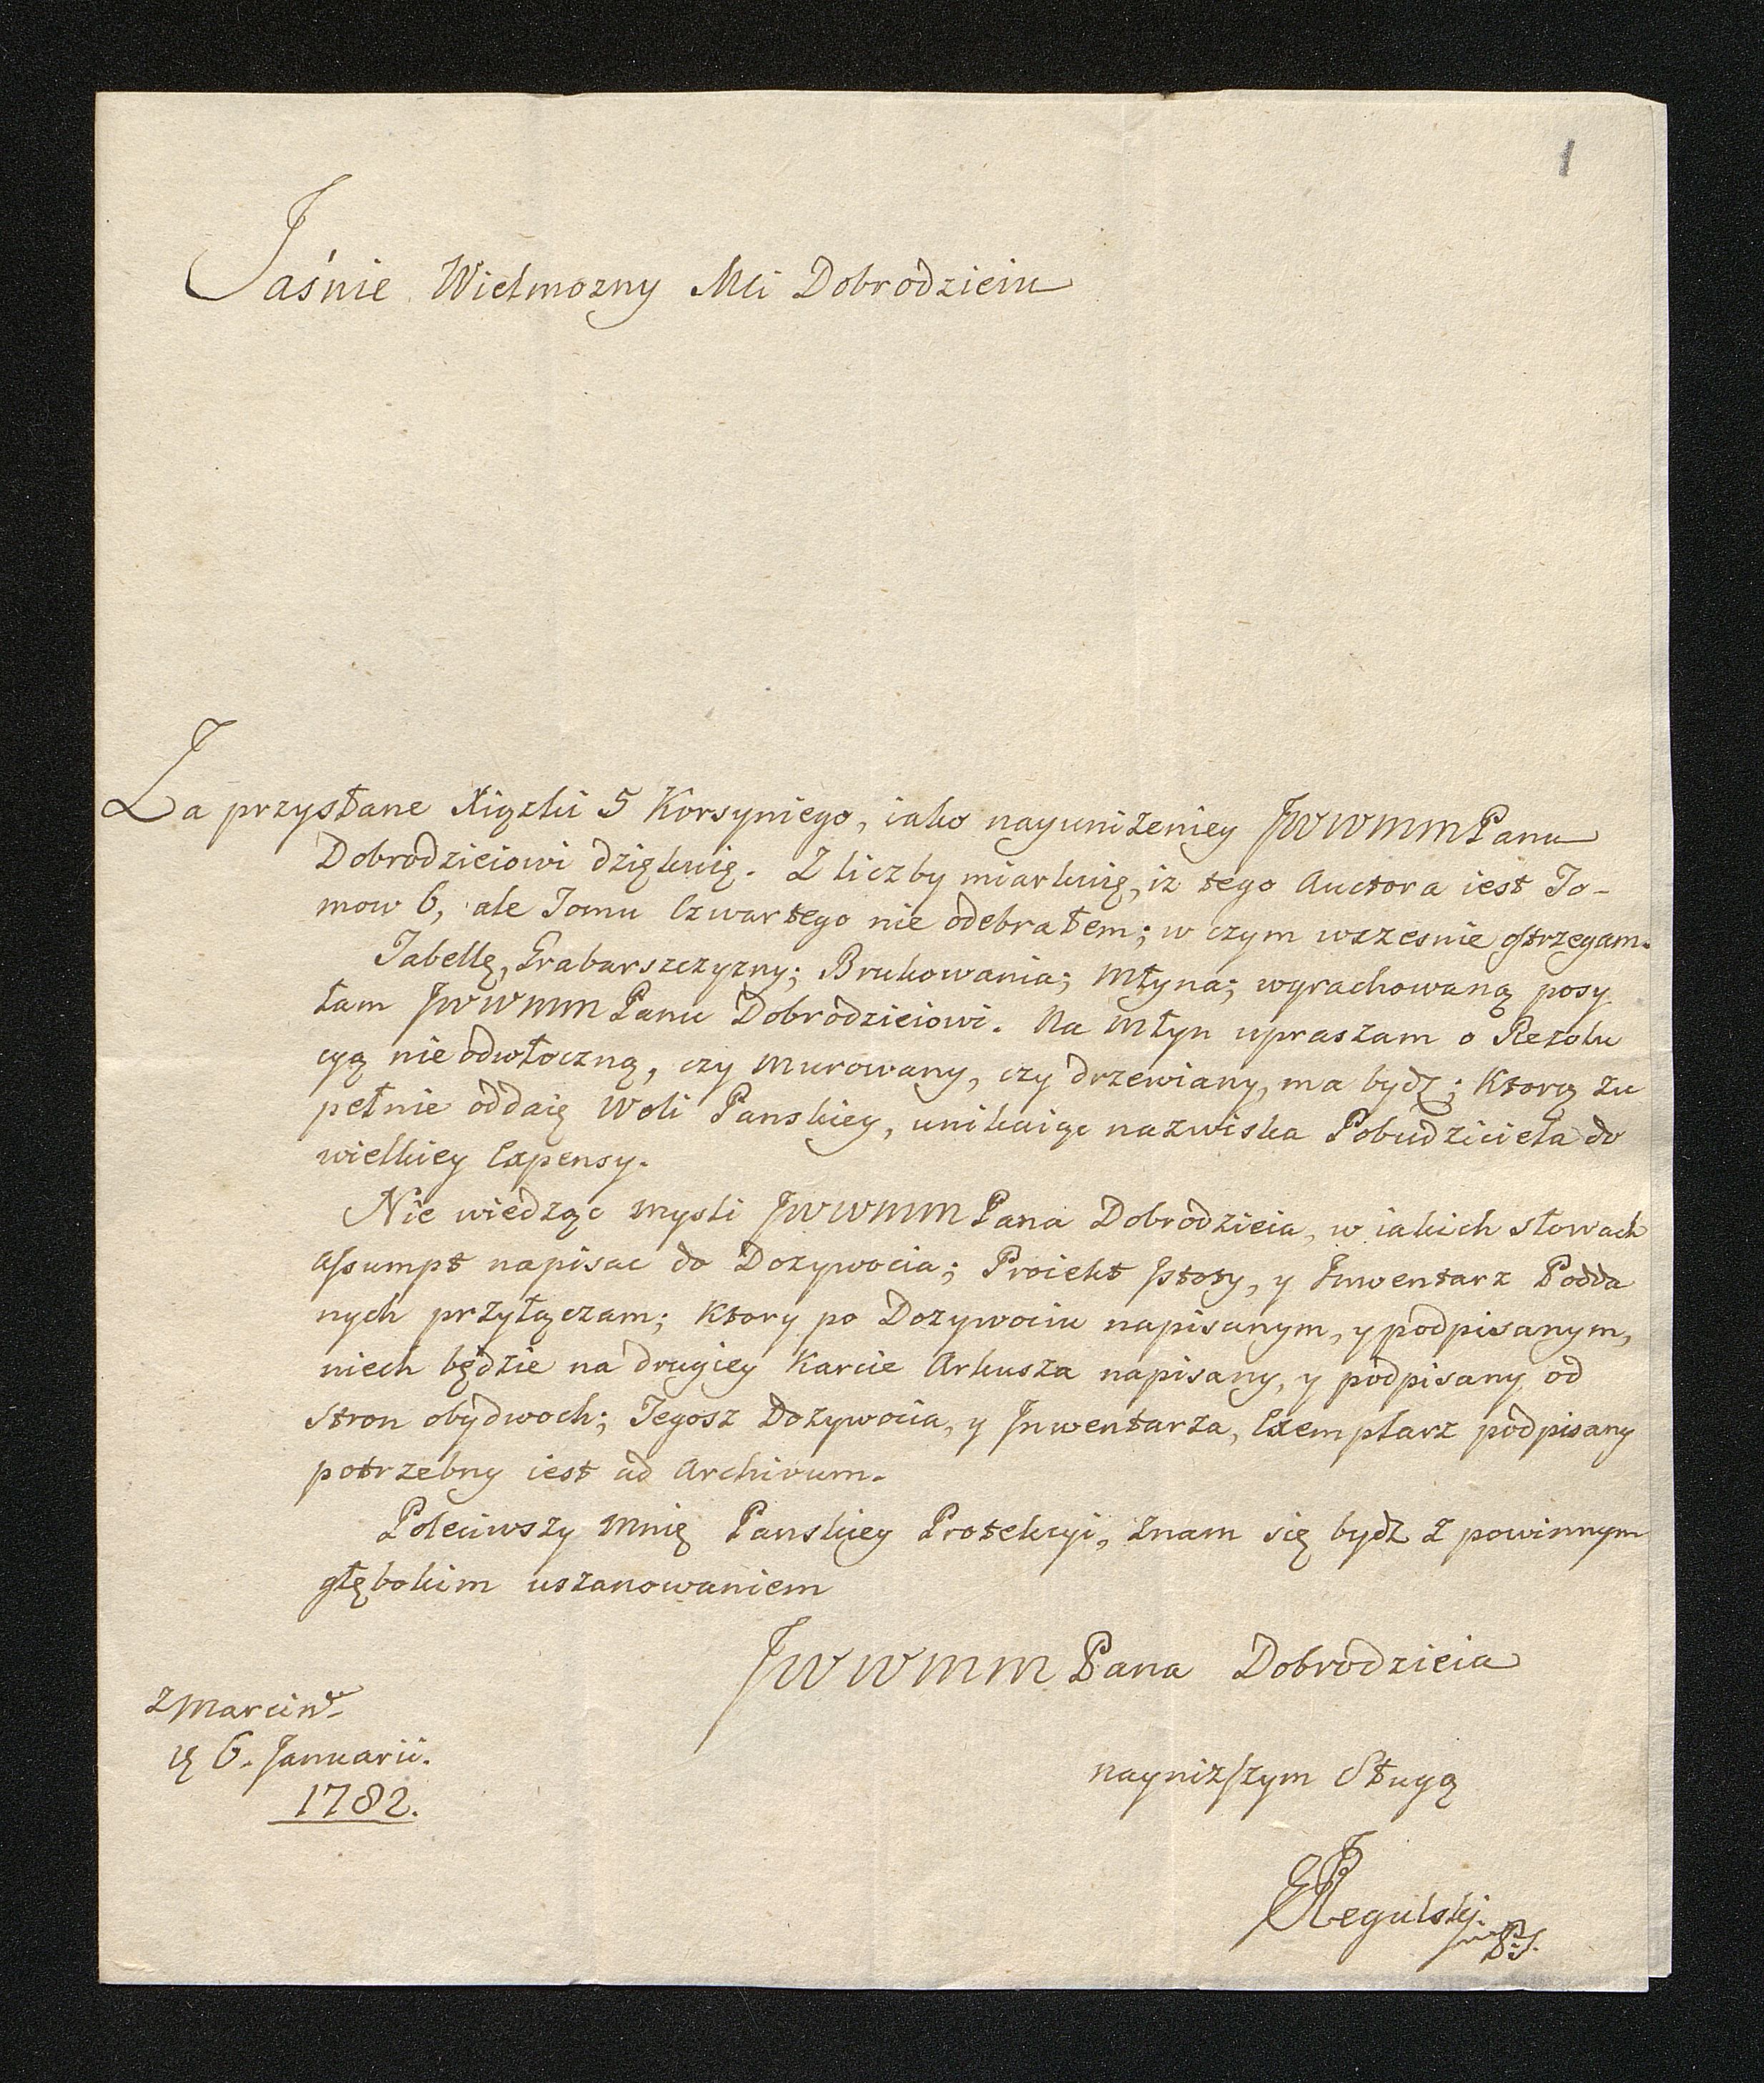 1
Jaśnie Wielmozny Mci Dobrodzieiu
Za przysłane Xiązki 5 Korsyniego, iako nayuniżeniey JWWMMPanu
Dobrodzieiowi dziękuię. Z liczby miarkuię, iz tego Auctora iest To-
mow 6, ale Tomu Czwartego nie odebrałem; w czym wczesnie ostrzegam.
Tabellę, Grabarszczyzny; Brukowania; Młyna; wyrachowaną posy
łam JWWMM Panu Dobrodzieiowi. Na Młyn upraszam o Rezolu
cyą nieodwłoczną, czy murowany, czy drzewiany, ma bydź; Ktorą zu
pełnie oddaię Woli Panskiey, unikaiąc nazwiska Pobudziciela do
wielkiey Expensy.
Nie wiedząc mysli JWWMM Pana Dobrodzieia, w iakich słowach
Assumpt napisac do Dozywocia; Proiekt istoty, y Inwentarz Podda
nych przyłączam; Ktory po Dozywociu napisanym, y podpisanym,
niech będzie na drugiey Karcie Arkusza napisany, y podpisany od
Stron obydwoch; Tegosz Dozywocia, y Inwentarza, Exemplarz podpisany
potrzebny iest ad Archivum.
Poleciwszy mnię Panskiey Protekcyi, znam się bydź z powinnym
głębokim uszanowaniem
JWWMM Pana Dobrodzieia
Z Marcinwa
6. Januarii.
1782.
nayniższym Sługą
Regulski.